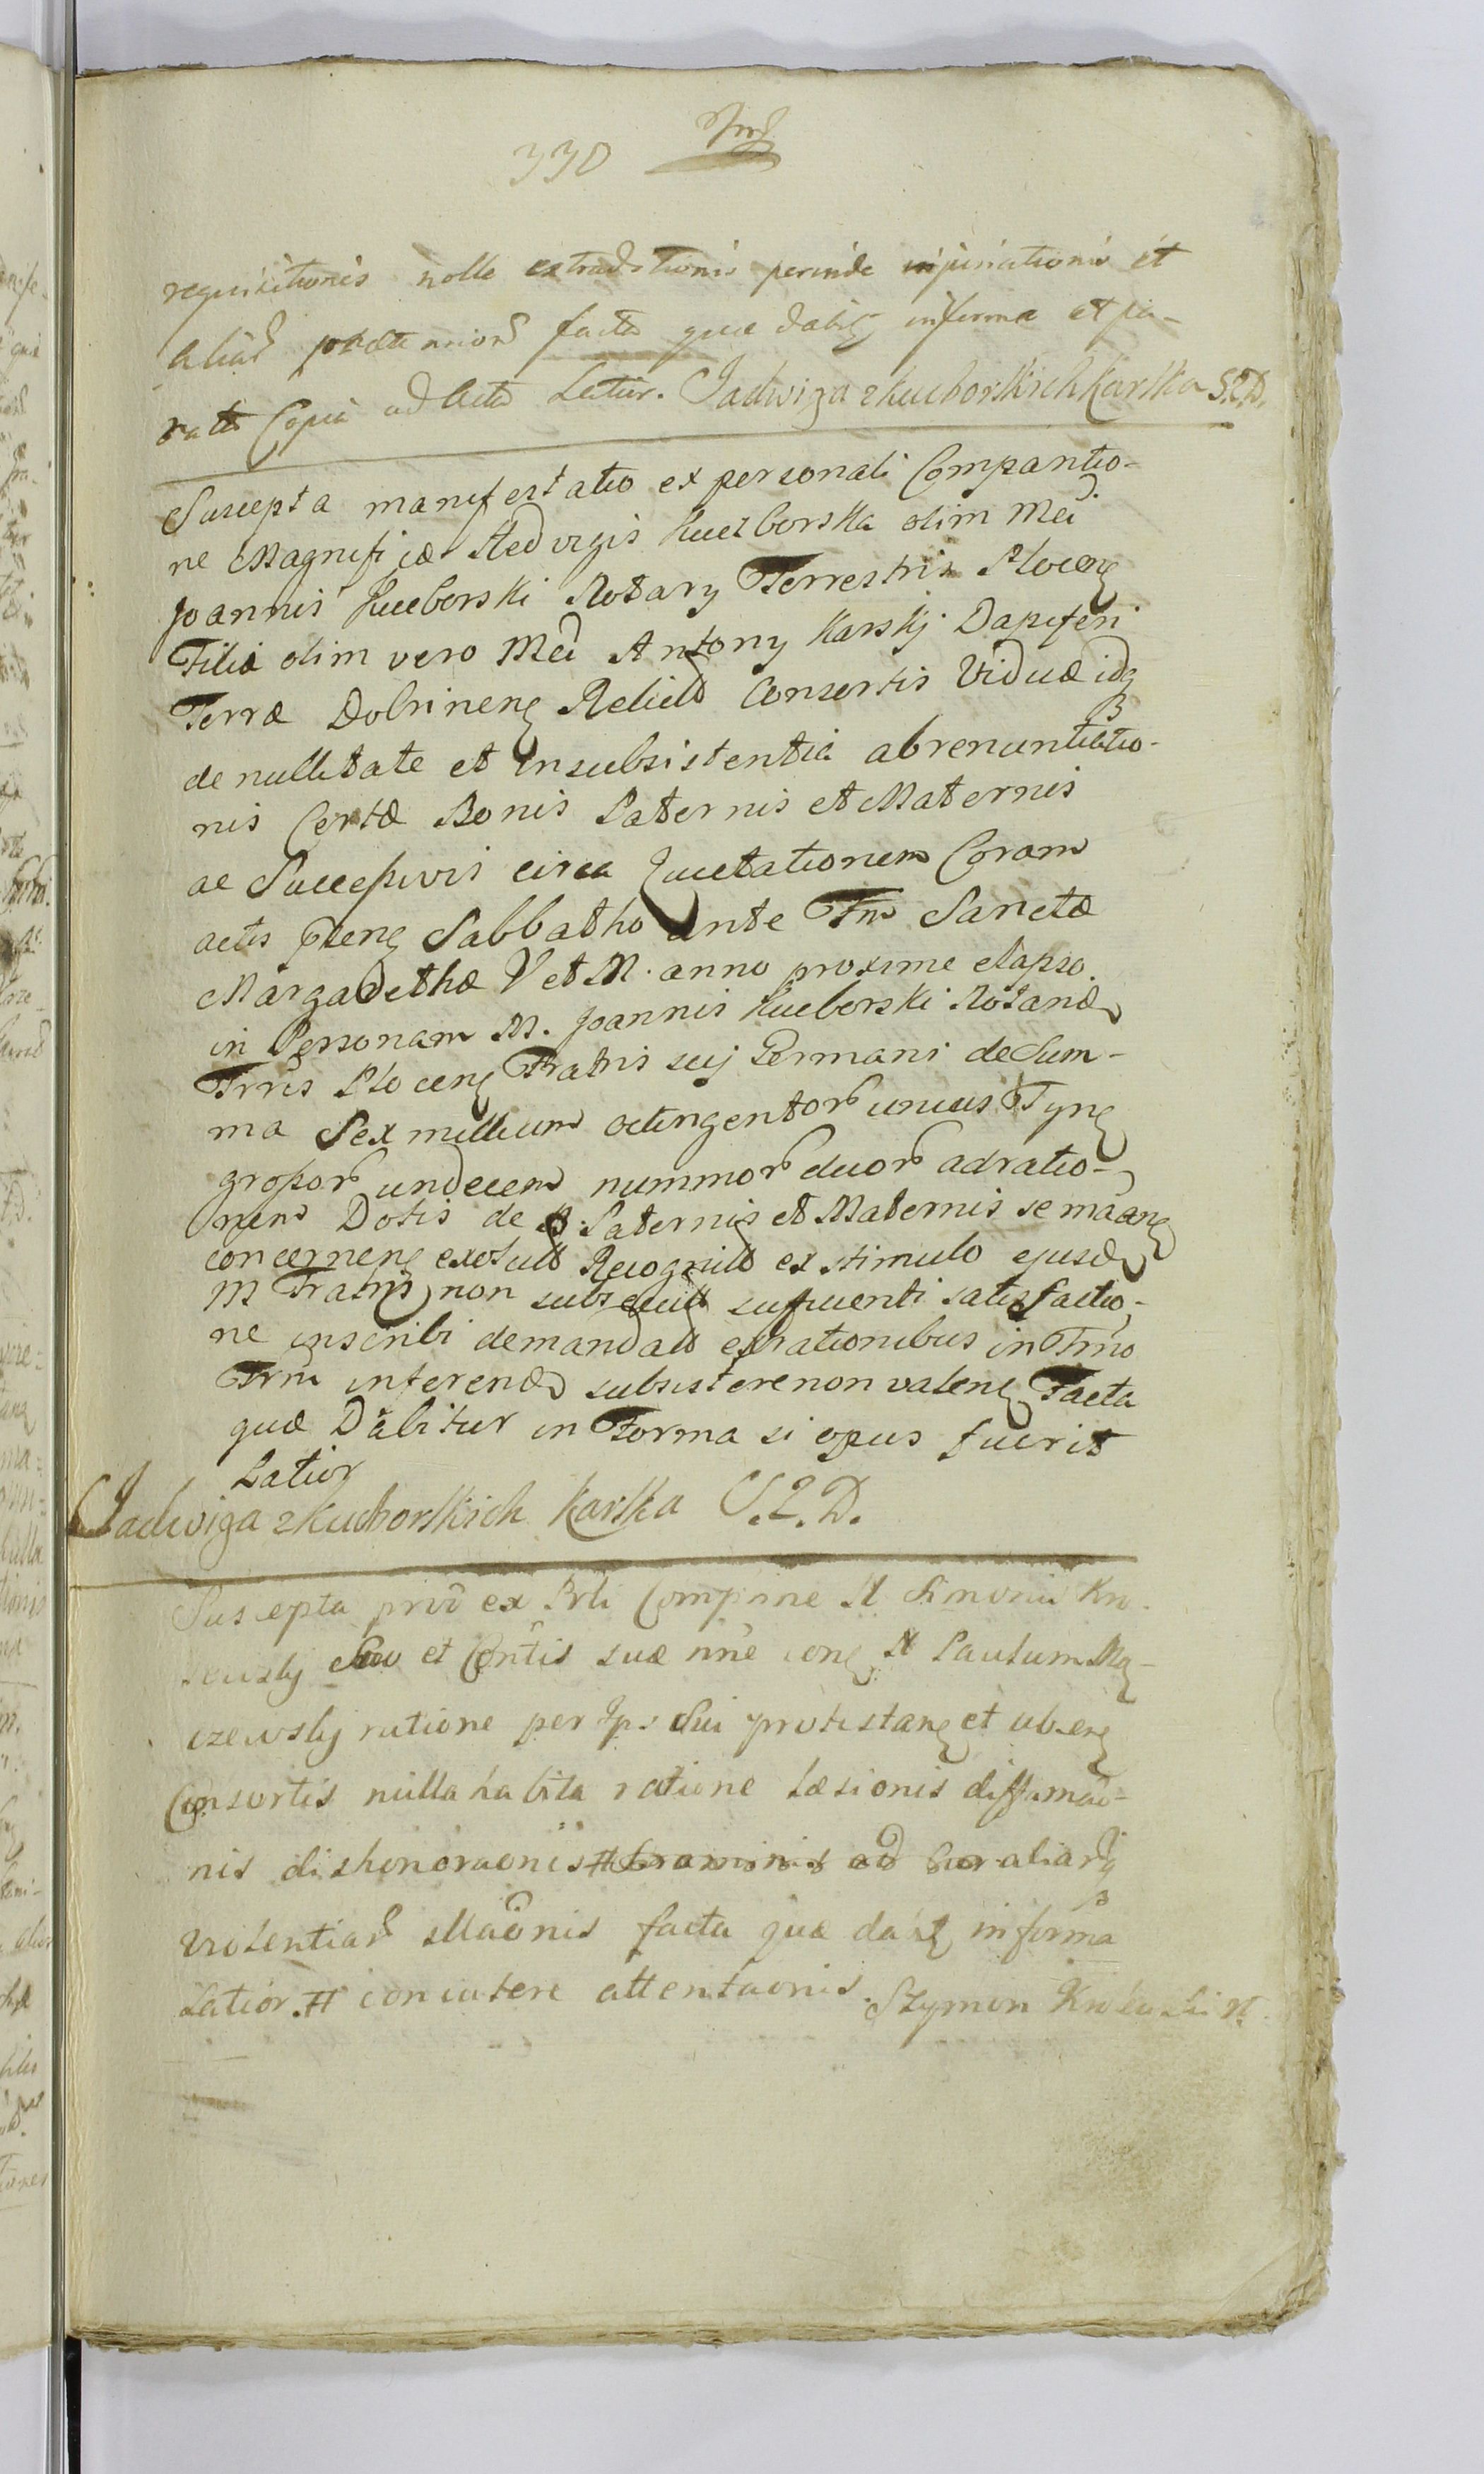 330
requisitionis nolle extraditionis perinde injuriationis et
aliar prætension facta quæ dabitz in forma et pa-
rata Copia ad Acta Latior. Jadwiga z Kuchorskich Karska S.P.D.
Suscepta manifestatio ex personali Comparitio-
ne Magnificæ Hedvigis Kuczborska olim Mci
Joannis Kucborski Notary Terrestris Plocen
Filia olim vero Mci Antony Karskj Dapiferi
Terræ Dobrinen Relictæ Consortis Viduæ idq
de nullitate et insubsistentia abrenuntiatio-
nis Certæ Bonis Paternis et Maternis
ac Successivis circa Quietationem Coram
actis pten Sabbatho ante Fm Sanctæ
Margarethæ V et M. anno proxime elapso
in Personam M. Joannis Kucborski Notarid
Trris Plocen Fratris suj Germani de Sum-
ma Sex millium octingentor unius Tyn
grossor undecem nummor duor ad ratio-
nem Dotis de B. Paternis et Maternis se maan
concernen exolut Recognit ex stimulo ejusd
M Fratris non subsecuta sufficienti satisfactio-
ne inscribi demandat ex rationibus in Tmo
Trm inferend subsistere non valen Facta
quæ Dabitur in Forma si opus fuerit
Latior
Jadwiga z Kuchorskich Karska S.P.D.
Suscepta prvo ex Prli Comp̃rne N Simonis Kro-
Suo et Contis suæ nñe con N Paulum Ma-
czewskj ratione per Ips Sui protestan et absen
Consortis nulla habita ratione Læsionis diffamao-
nis dishonoraonis # aliarq
violentiar Maonis facta quæ dabit in forma
Latior. # concutere attentaonis. Szymon